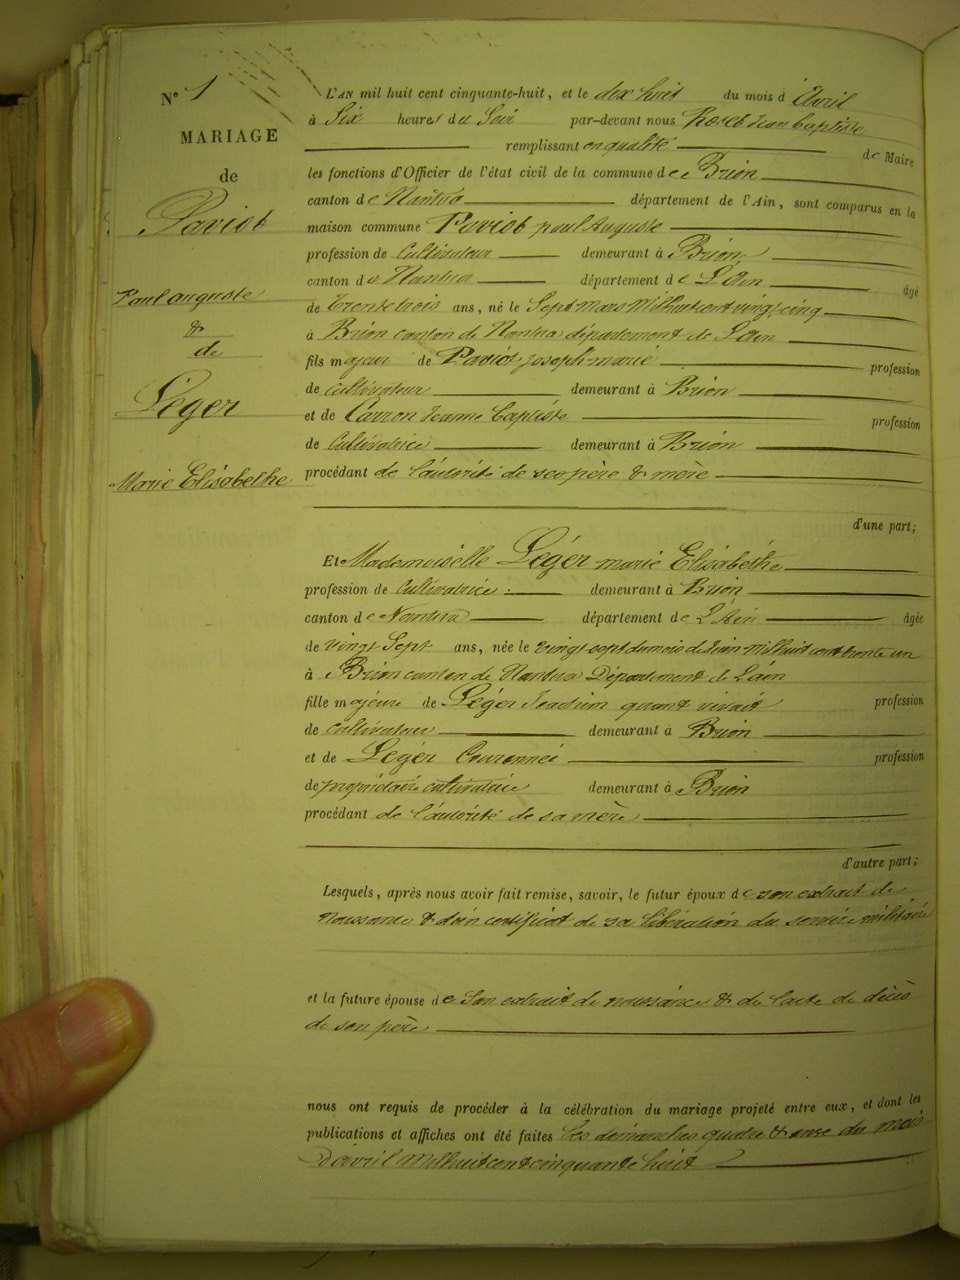 N° 1
MARIAGE
de
Paviot
Paul auguste
&
de
Léger
Marie Elisabethe
L'AN mil huit cent cinquante-huit, et le dix huit du mois d'Avril
à Six heures du Soir par-devant nous Jean baptiste
remplissant en qualité de Maire
les fonctions d'Officier de l'état civil de la commune de Brion
canton de Nantua département de l'Ain, sont comparus en la
maison commune Paviot paul Auguste
profession de Cultivateur demeurant à Brion
canton de Nantua département de L'Ain âgé
de trente trois ans, né le Sept mars Mil huit cent vingt cinq
à Brion canton de Nantua département de L'Ain
fils majeur de Paviot joseph marie profession
de cultivateur demeurant à Brion
et de Carron Jeanne Baptiste profession
de Cultivatrice demeurant à Brion
procédant de l'autorité de ses père & mère
d'une part;
Et Mademoiselle Léger marie Elisabethe
profession de Cultivatrice demeurant à Brion
canton de Nantua département de L'Ain âgée
de vingt Sept ans, née le vingt sept du mois de juin mil huit cent trente un
à Brion canton de Nantua Département de L'ain
fille majeure de Léger Joachim quant vivait profession
de cultivateur demeurant à Brion
et de Léger Couronnée profession
de propriétaire cultivatrice demeurant à Brion
procédant de l'autorité de sa mère
d'autre part;
Lesquels, après nous avoir fait remise, savoir, le futur époux de son extrait de
naissance & d'un certificat de sa libération du service militaire
et la future épouse de Son extrait de naissance & de l'acte de décès
de son père
nous ont requis de procéder à la célébration du mariage projeté entre eux, et dont les
publications et affiches ont été faites les dimanches quatre & onze du mois
D'avril Mil huit cent cinquante huit